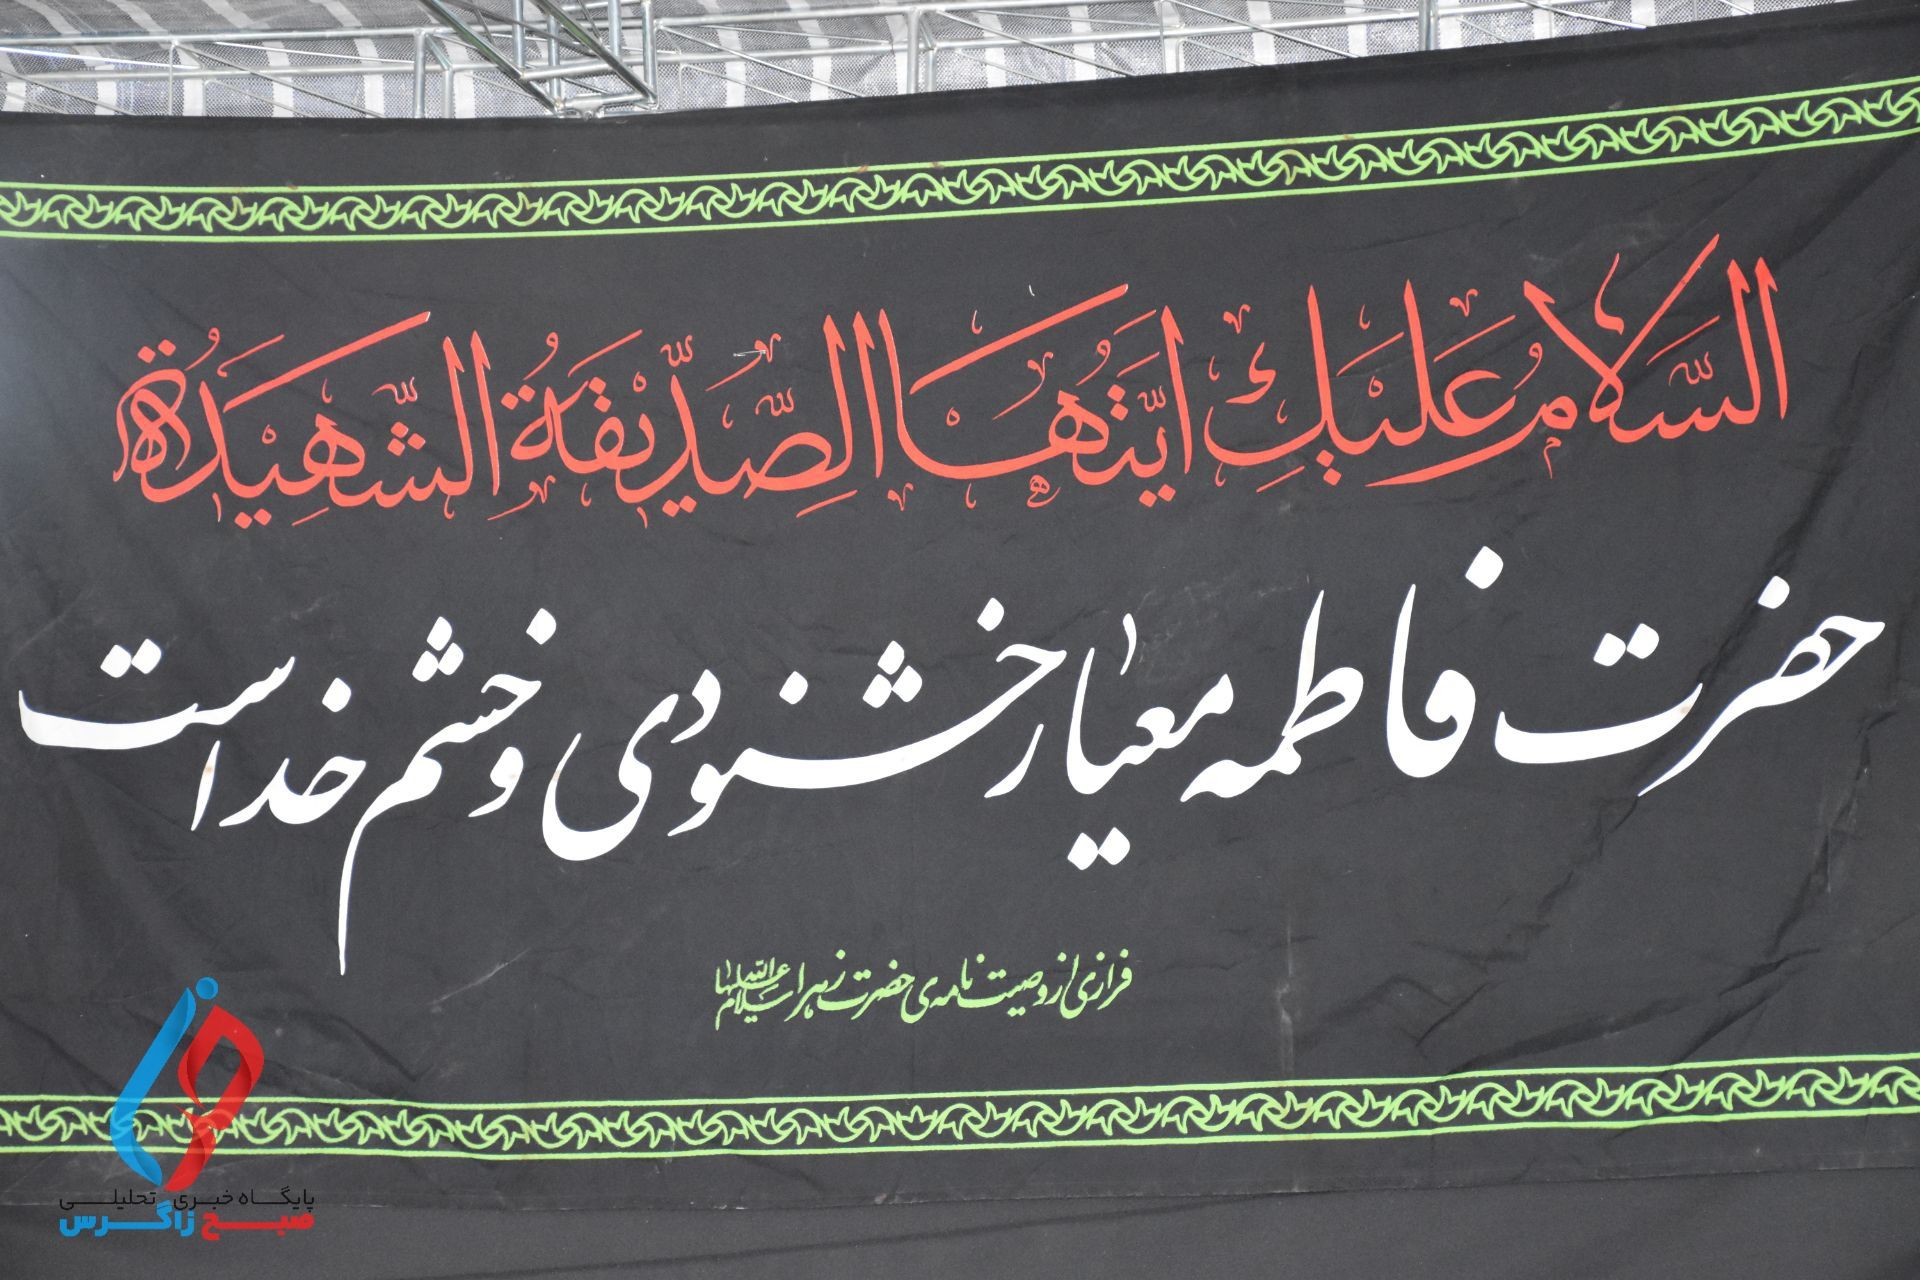 السَّلامُ عَلَیْكِ اَیَّتُهَا الصِّدّیقَةُ الشَّهیدَةُ
حضرت فاطمه معیار خشنودی و خشم خداست
فرازی از وصیت نامه‌ی حضرت زهرا سلام الله علیها
پایگاه خبری تحلیلی
صبح زاگرس